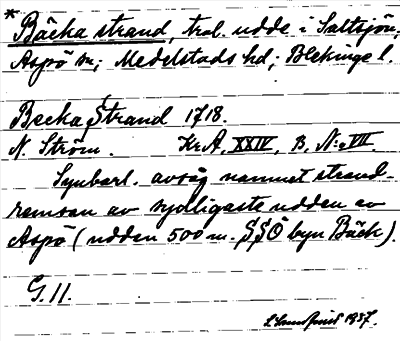 * Bäcka strand, trol. udde i Saltsjön,
Aspö sn; Medelstads hd; Blekinge l.
Becka Strand 1718.
N. Ström. Kr A, XXIV, B, N:o VII.
Synbarl. avsåg namnet strand-
remsan av sydligaste udden av
Aspö (udden 500 m. SSÖ byn Bäck).
G. 11.
1937.